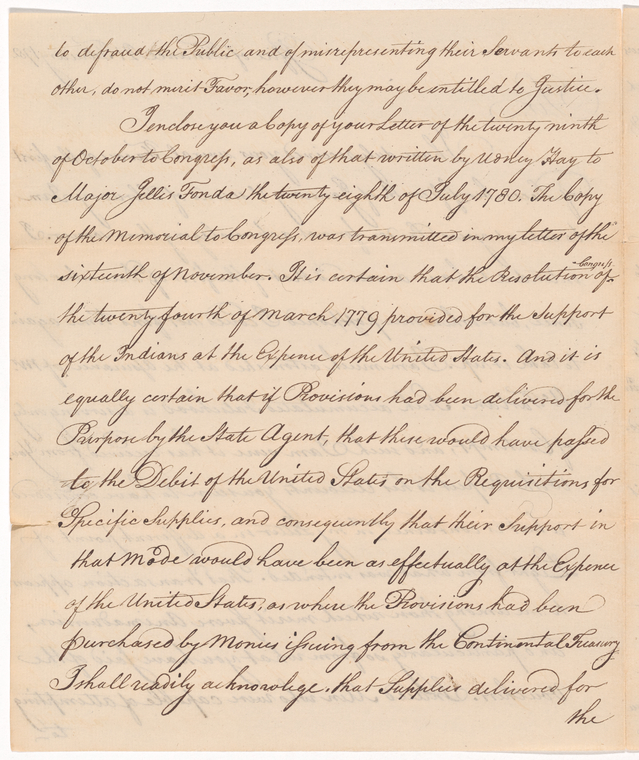 to defraud the Public and of misrepresenting their Servants to each
other, do not merit Favor, however they may be entitled to Justice.
I enclose you a Copy of your Letter of the twenty ninth
of October to Congress, as also of that written by Udney Hay to
Major Jellis Fonda the twenty eighth of July 1780. The Copy
of the Memorial to Congress, was transmitted in my letter of the
sixteenth of November. It is certain that the Resolution of Congress
the twenty fourth of March 1779 provided for the Support
of the Indians at the Expence of the United States. And it is
equally certain that if Provisions had been delivered for the
Purpose by the State Agent, that these would have passed
to the Debit of the United States on the Requisitions for
Specific Supplies, and consequently that their Support in
that Mode would have been as effectually at the Expence
of the United States, as where the Provisions had been
purchased by Monies issuing from the Continental Treasury
I shall readily acknowlege, that Supplies delivered for
the